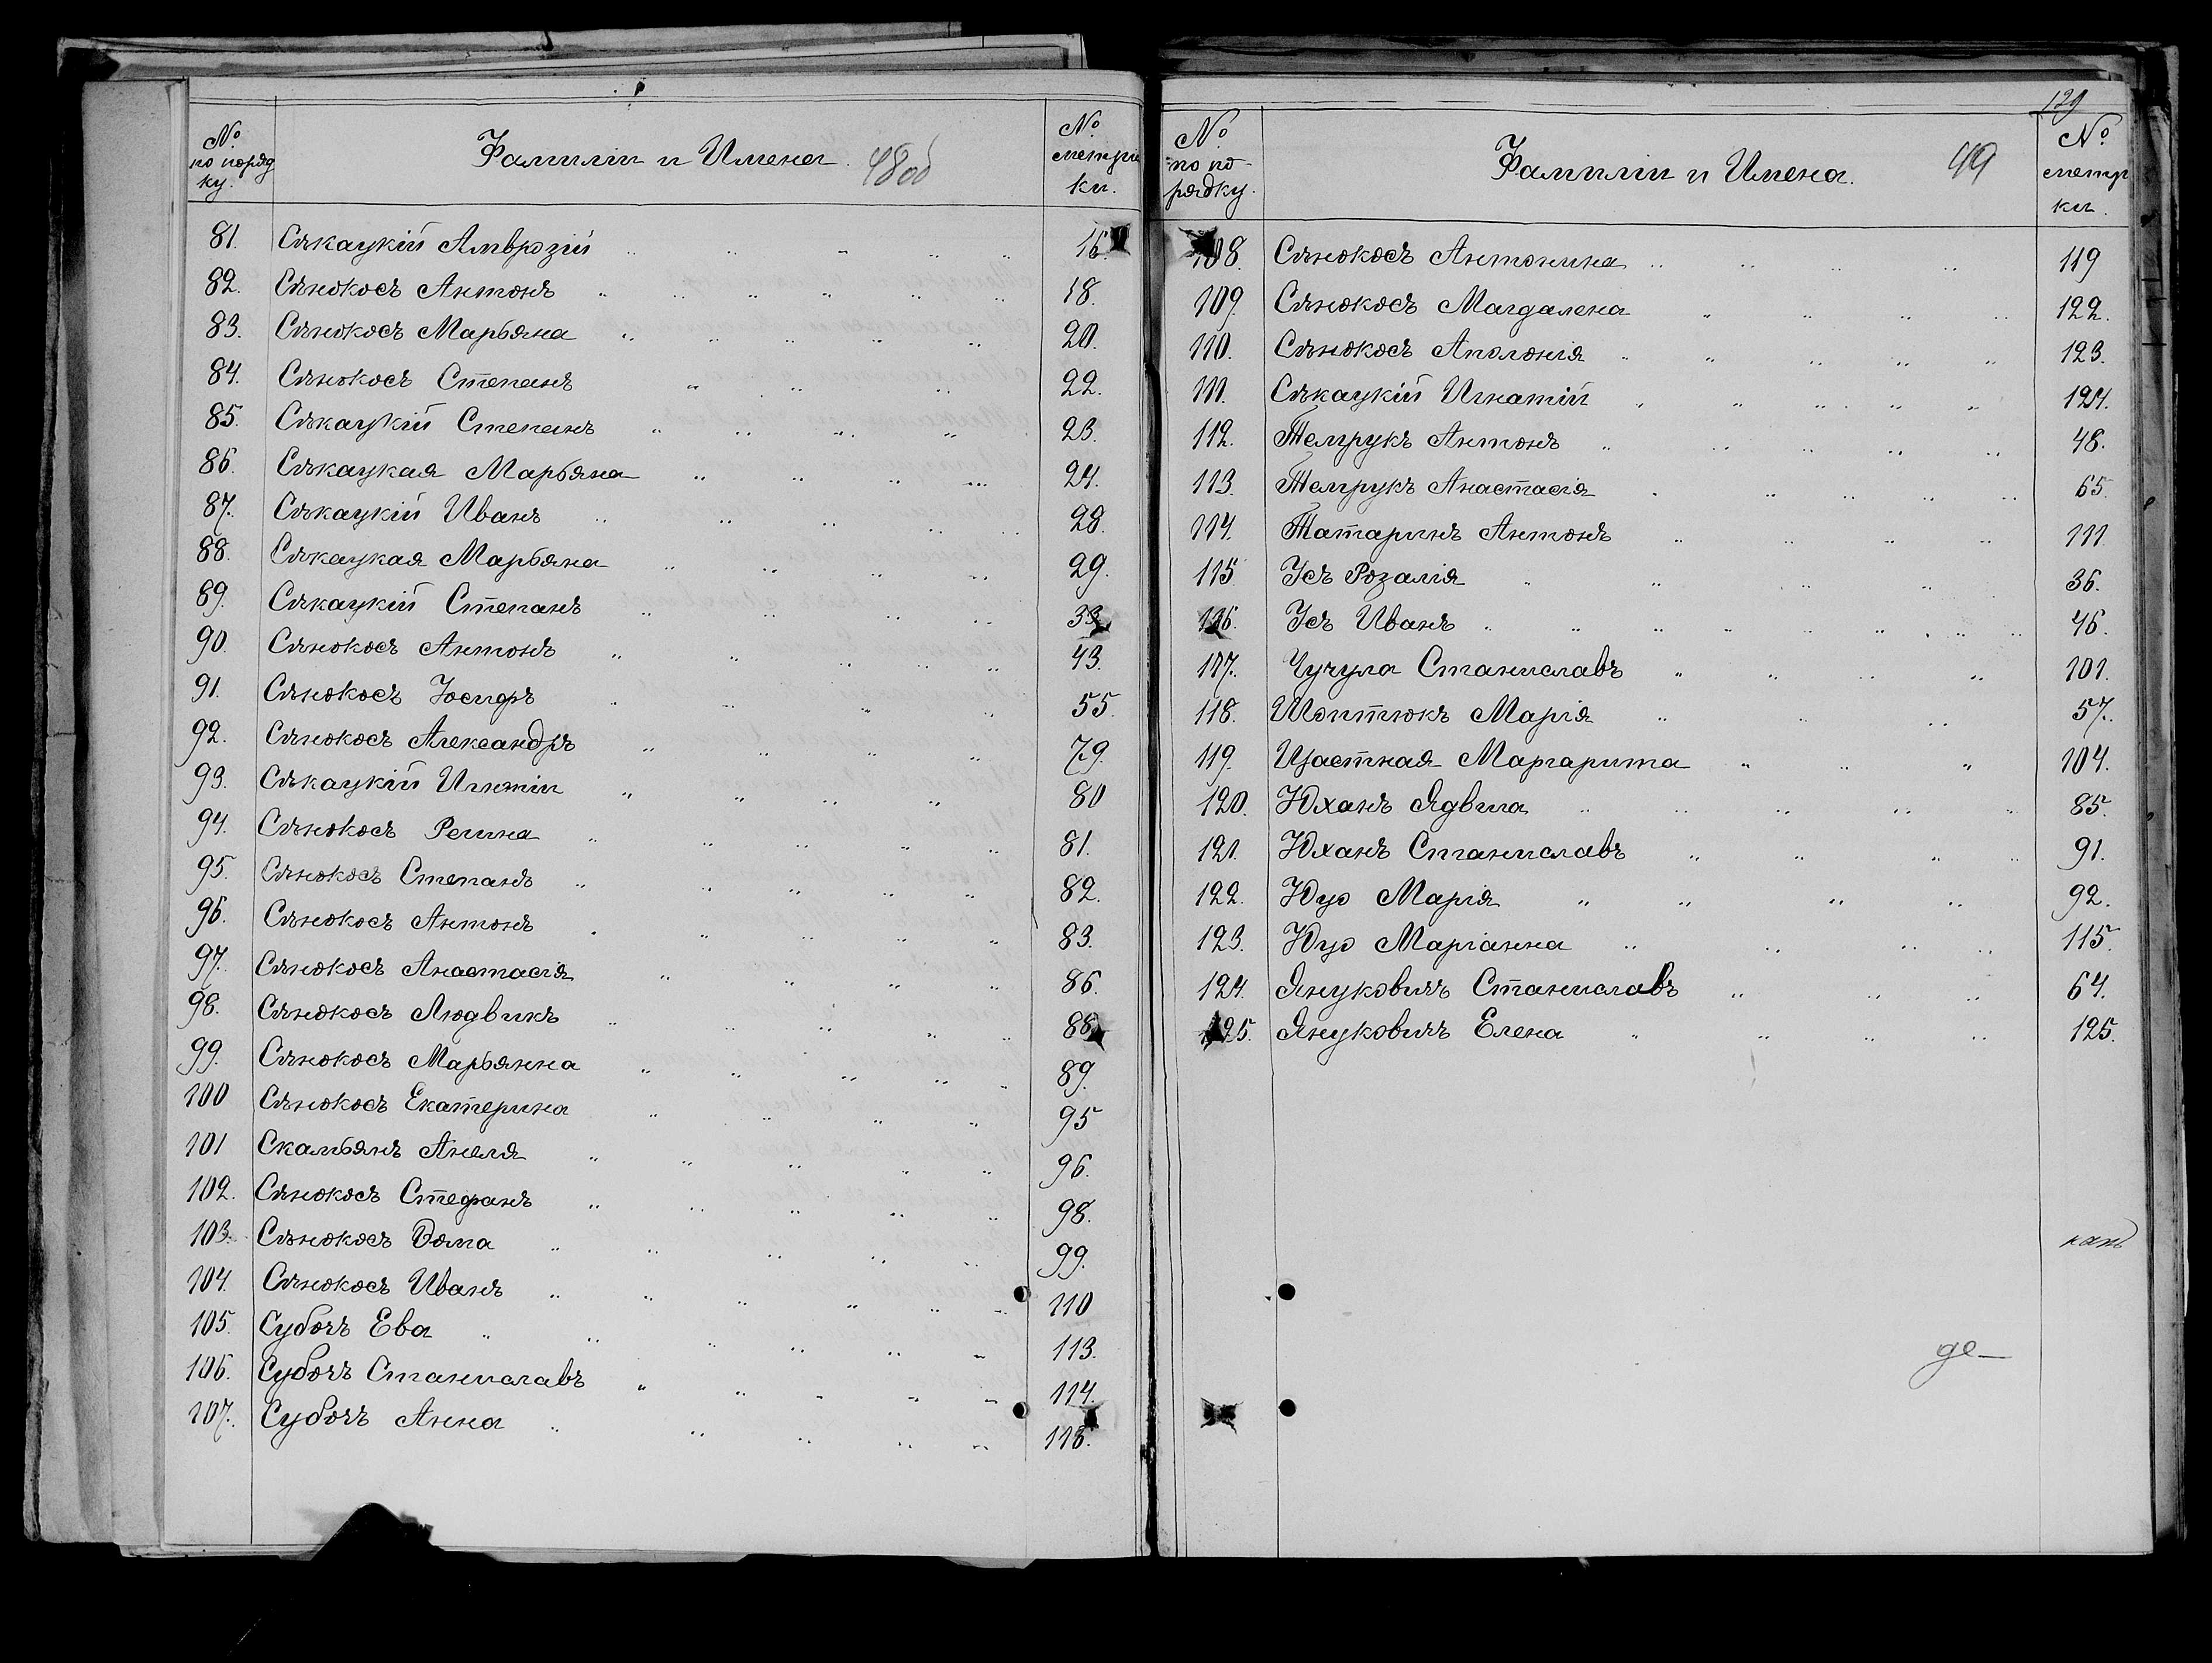 № по порядку.
Фамилiи и Имена.
48об
№ метрики.
81. Сѣкацкiй Амврозiй 16.
82. Сѣнокосъ Антонъ 18.
83. Сѣнокосъ Марьяна 20.
84. Сѣнокосъ Степанъ 22.
85. Сѣкацкiй Степанъ 23.
86. Сѣкацкая Марьяна 24.
87. Сѣкацкiй Иванъ 28.
88. Сѣкацкая Марьяна 29.
89. Сѣкацкiй Степанъ 33.
90. Сѣнокосъ Антонъ 43.
91. Сѣнокосъ Iосифъ 55.
92. Сѣнокосъ Александръ 79.
93. Сѣкацкiй 80
94. Сѣнокосъ Регина 81.
95. Сѣнокосъ Степанъ 82.
96. Сѣнокосъ Антонъ 83.
97. Сѣнокосъ Анастасiя 86.
98. Сѣнокосъ Людвикъ 88
99. Сѣнокосъ Марьянна 89.
100 Сѣнокосъ Екатерина 95
101 Скамьянъ Анеля 96.
102. Сѣнокосъ Стефанъ 98.
103. Сѣнокосъ Ѳома 99.
104. Сѣнокосъ Иванъ 110
105. Субочъ Ева 113.
106. Субочъ Станиславъ 114.
107. Субочъ Анна 118.
129
№ по порядку.
Фамилiи и Имена.
49
№ метрики.
108. Сѣнокосъ Антонина 119
109. Сѣнокосъ Магдалена 122.
110. Сѣнокосъ Аполонiя 123.
111. Сѣкацкiй Игнатiй 124.
112. Темрукъ Антонъ 48.
113. Темрукъ Анастасiя 65.
114. Татаринъ Антонъ 111
115 Усъ Розалiя 36.
116. Усъ Иванъ 46.
117. Чучула Станиславъ 101.
118. Шоптюкъ Марiя 57.
119. Щастная Маргарита 104.
120. Юханъ Ядвига 85.
121. Юханъ Станиславъ 91.
122. Юцо Марiя 92.
123. Юцо Марiанна 115.
124. Януковичъ Станиславъ 64.
125. Януковичъ Елена 125.